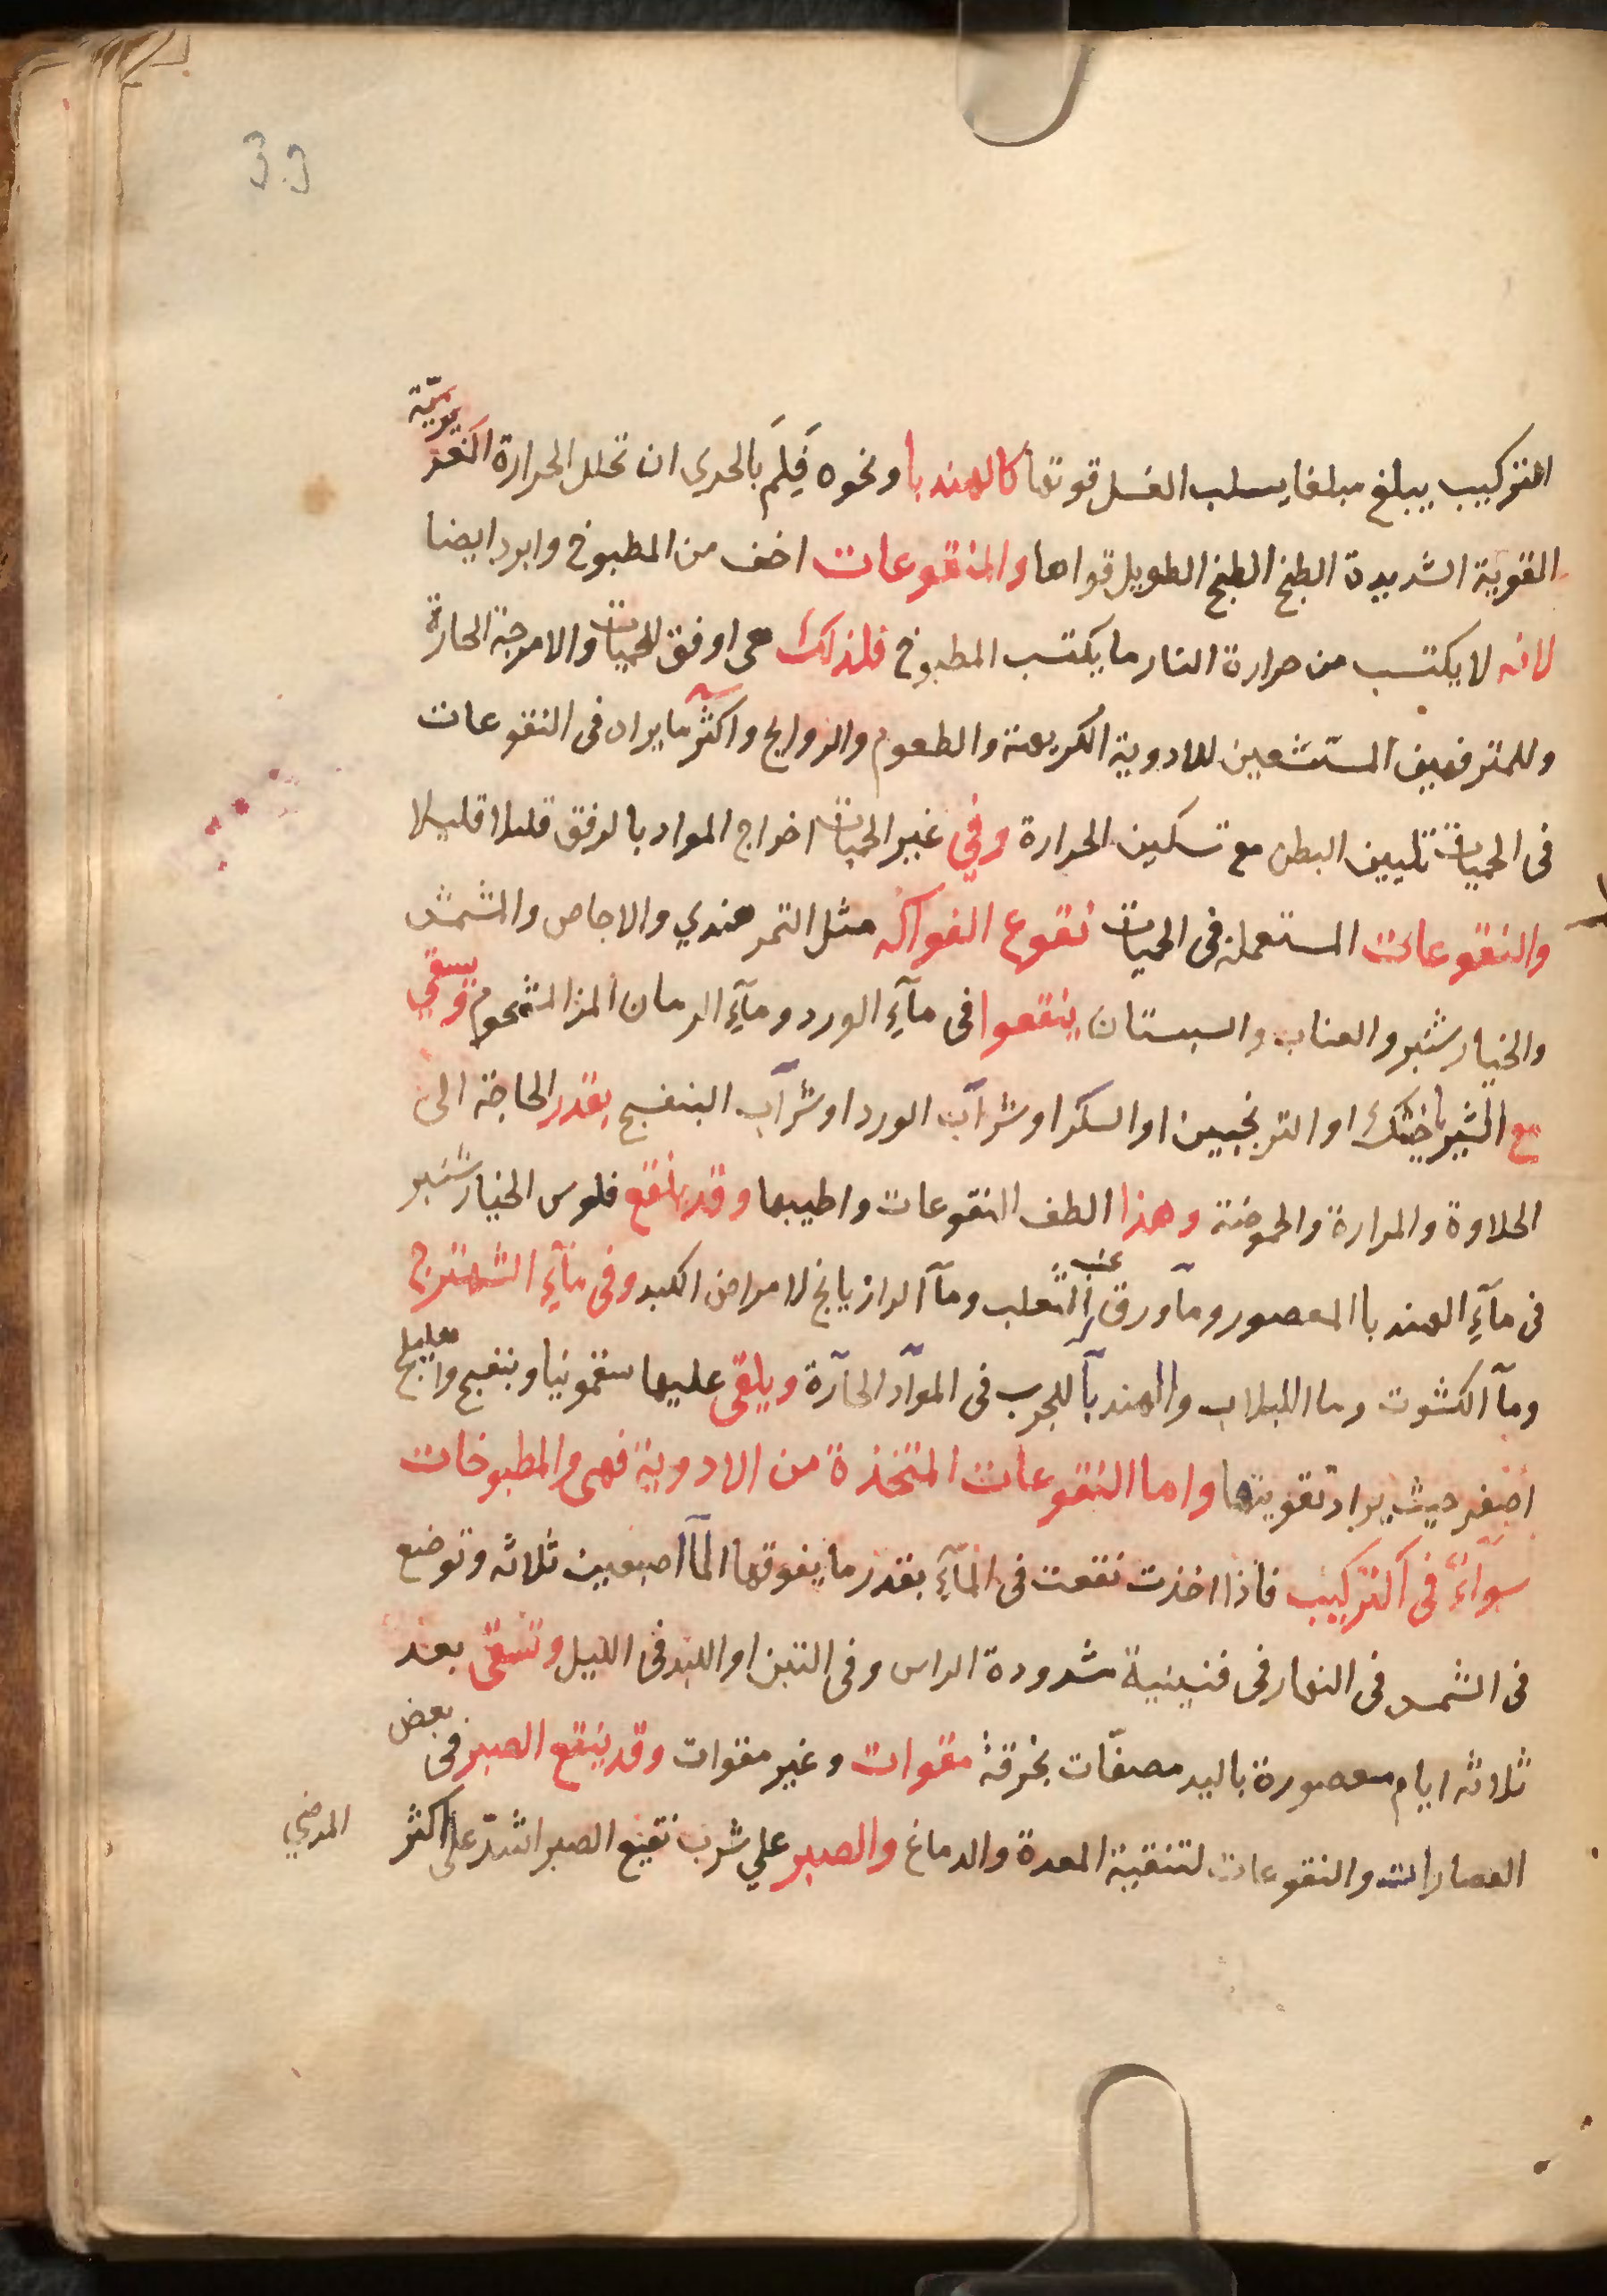 39
التركيب يبلغ مبلغا يسلب الغسل قوتها كالهندبا ونحوه فَلِمَ بالحري ان تحلل الحرارة الغير يوميّة
القوية الشديدة الطبخ الطبخ الطويل قواها والمنقوعات اخف من المطبوخ وابرد ايضا
لانه لا يكتسب من حرارة النار ما يكتسب المطبوخ فلذلك هي اوفق للحميات والامزجة الحارة
وللمترفهين المستشعين للادوية الكريهة والطعوم والروايح واكثر ما يراد فى النقوعات
فى الحميات تليين البطن مع تسكين الحرارة وفي غير الحميات اخراج المواد بالرفق قليلا قليلا
والنقوعات المستعملة فى الحميات نقوع الفواكه مثل التمر هندي والاجاص والمشمش
والخيار شنبر والعناب والسبستان ينقعوا فى مآءِ الورد ومآءِ الرمان المز المشحوم ويسقي
مع الشيرباخشك او الترنجبين او السكر او شرآب الورد او شرآب البنفسج بقدر الحاجة الى
الحلاوة والمرارة والحموضة وهذا الطف النقوعات واطيبها وقد ينقع فلوس الخيار شنبر
فى مآءِ الهندبا المعصور ومآ ورق عنب الثعلب ومآ الرازيانج لامراض الكبد وفى مآءِ الشهترج
ومآ الكشوت وما اللبلاب والهندبآ للجرب فى الموآد الحآرة ويلقى عليها سقمونيا وبنفسج واهليلج
اصفر حيث يراد تقويتها واما النقوعات المتخذة من الادوية فهى والمطبوخات
سوآءً فى التركيب فاذا اخذت نقعت فى المآءِ بقدر ما يفوقها المآ اصبعين ثلاثه وتوضع
فى الشمس فى النهار فى قنينية مشدودة الراس وفى التبن او اللبد فى الليل وتسقى بعد
ثلاثه ايام معصورة باليد مصفّات بخرقة مقوات وغير مقوات وقد ينقع الصبر فى بعض
العصارات والنقوعات لتنقية المعدة والدماغ والصبر علي شرب نقيع الصبر اشدّ على اكثر
المرضي